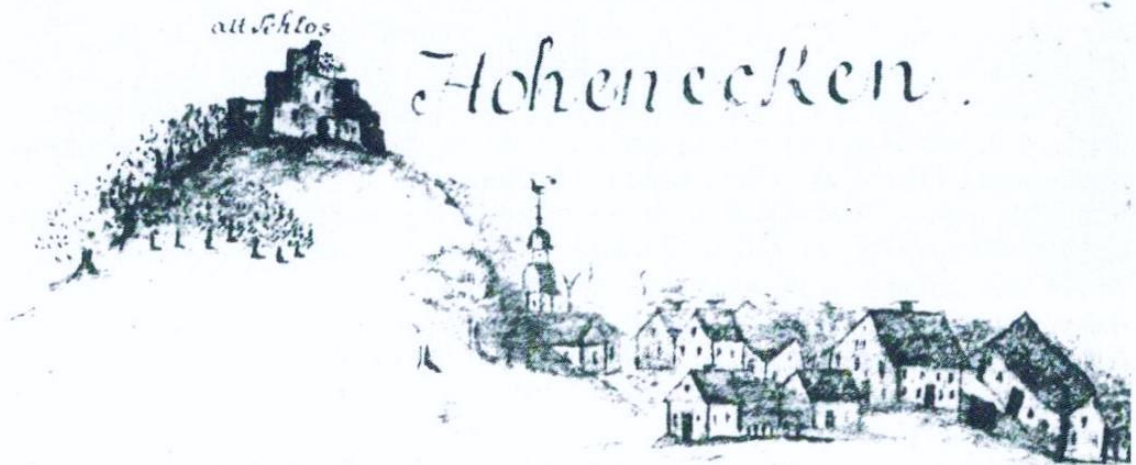 alt Schlos
Hohenecken.